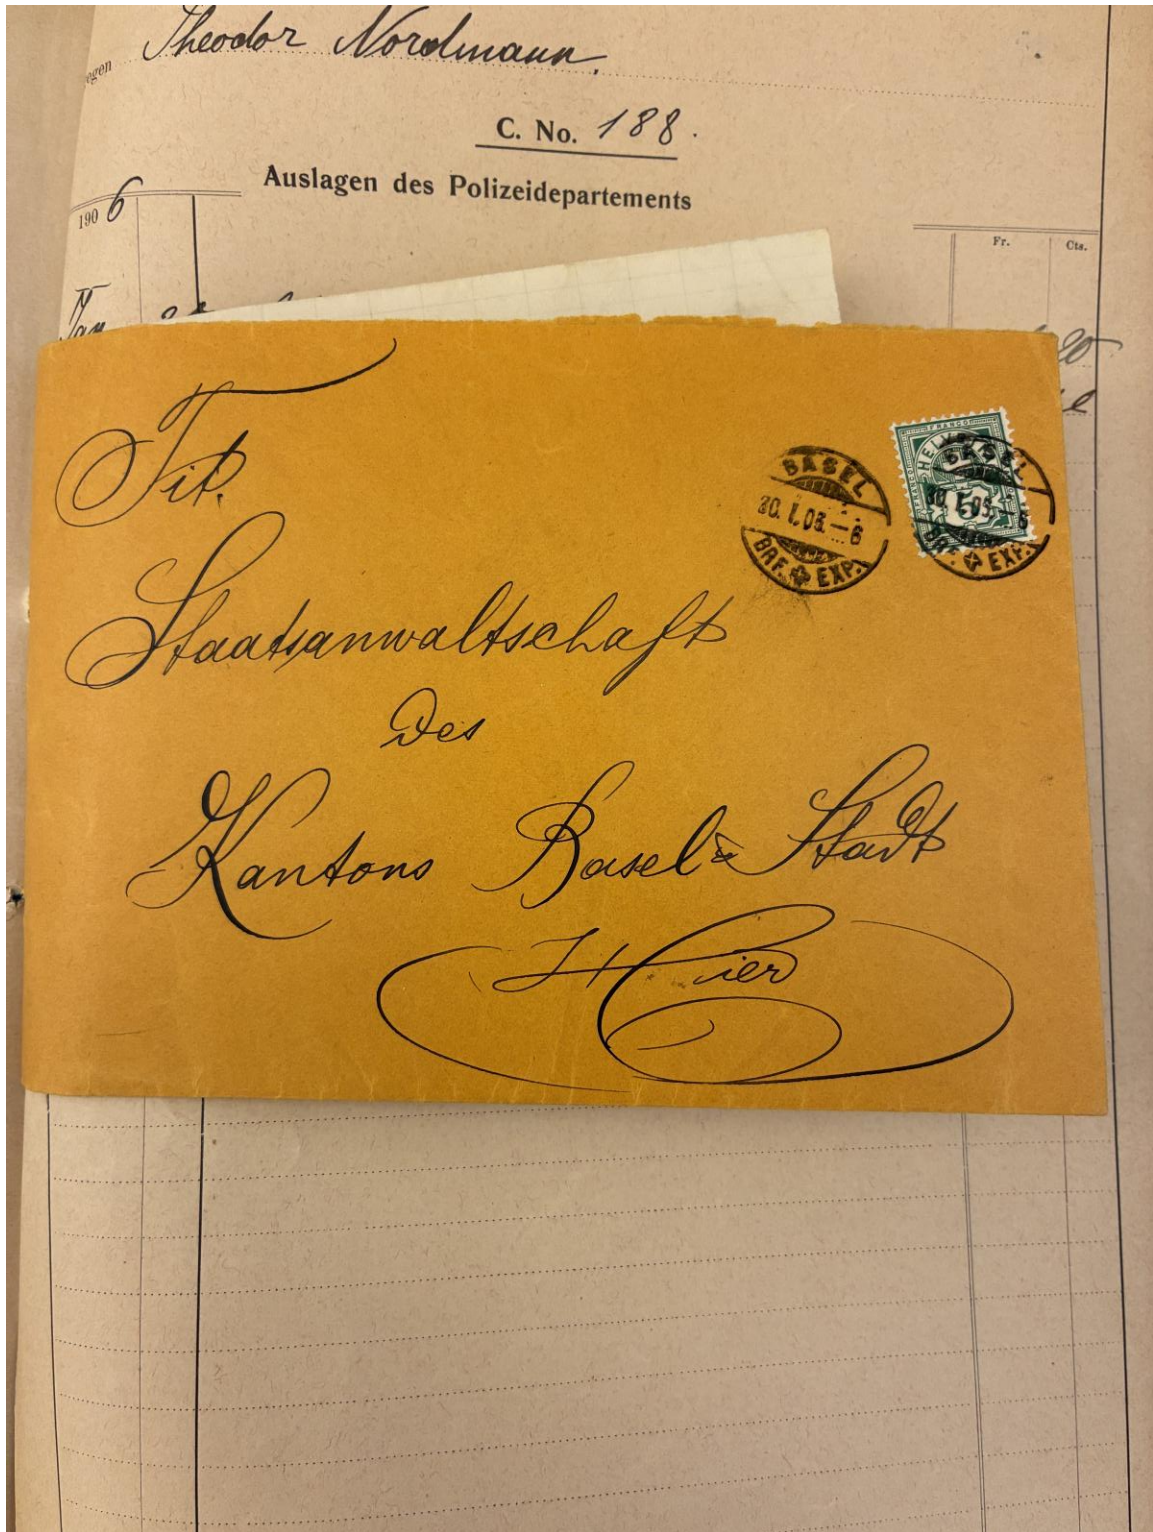 egen Theodor Nordmann.
C. No. 188.
Auslagen des Polizeidepartements
1906
Fr. Cts.
Jan
20
Tit.
BASEL
30. I. 06. – 6
BRF. EXP.
FRANCO
HELVETIA
5
BASEL
30. I. 06. – 6
BRF. EXP.
Staatsanwaltschaft
des
Kantons Basel-Stadt
Hier